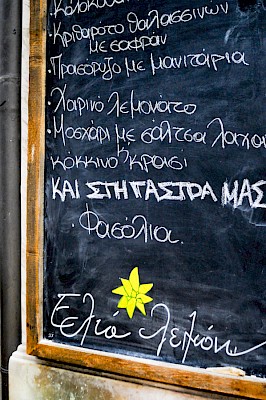 Κριθαρότο θαλασσινών
με σαφράν
Πρασόρυζο με μανιτάρια
Χοιρινό λεμονάτο
Μοσχάρι με σάλτσα
κόκκινο κρασί
ΚΑΙ ΣΤΗ ΓΑΣΤΡΑ ΜΑΣ
Φασόλια.
Ελιά λεμόνι